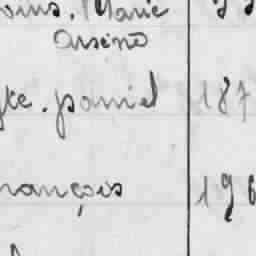 oins, Marie
Arsène
te. Daniel 187
rançois 196